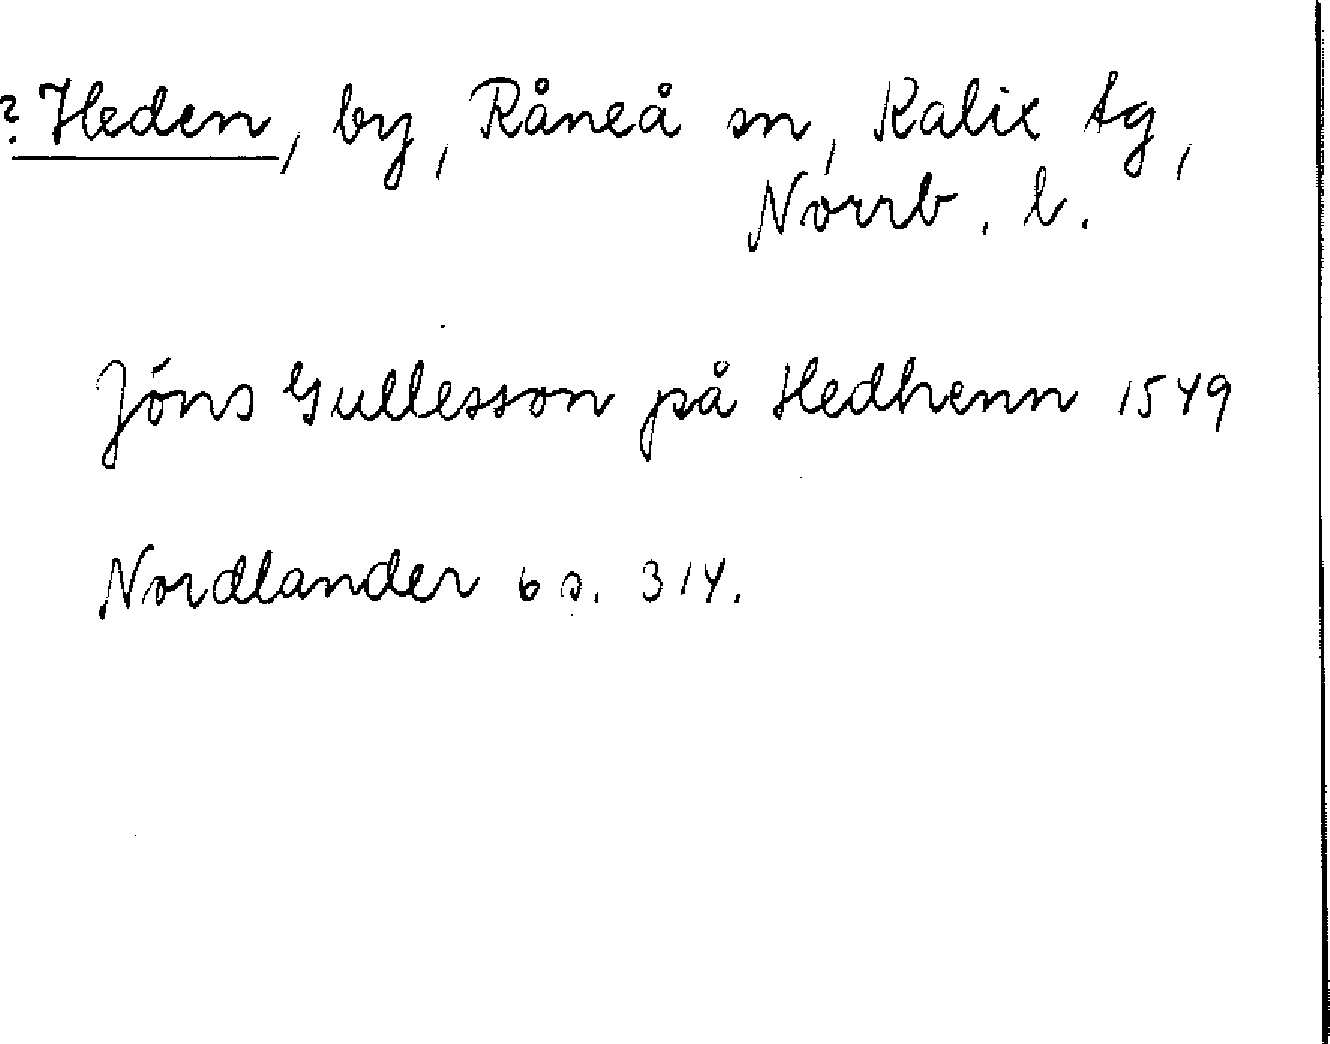 ? Heden, by, Råneå sn, Kalix tg,
Norrb. l.
Jóns Gullesson på Hedhenn 1549
Nordlander 6 s. 314.